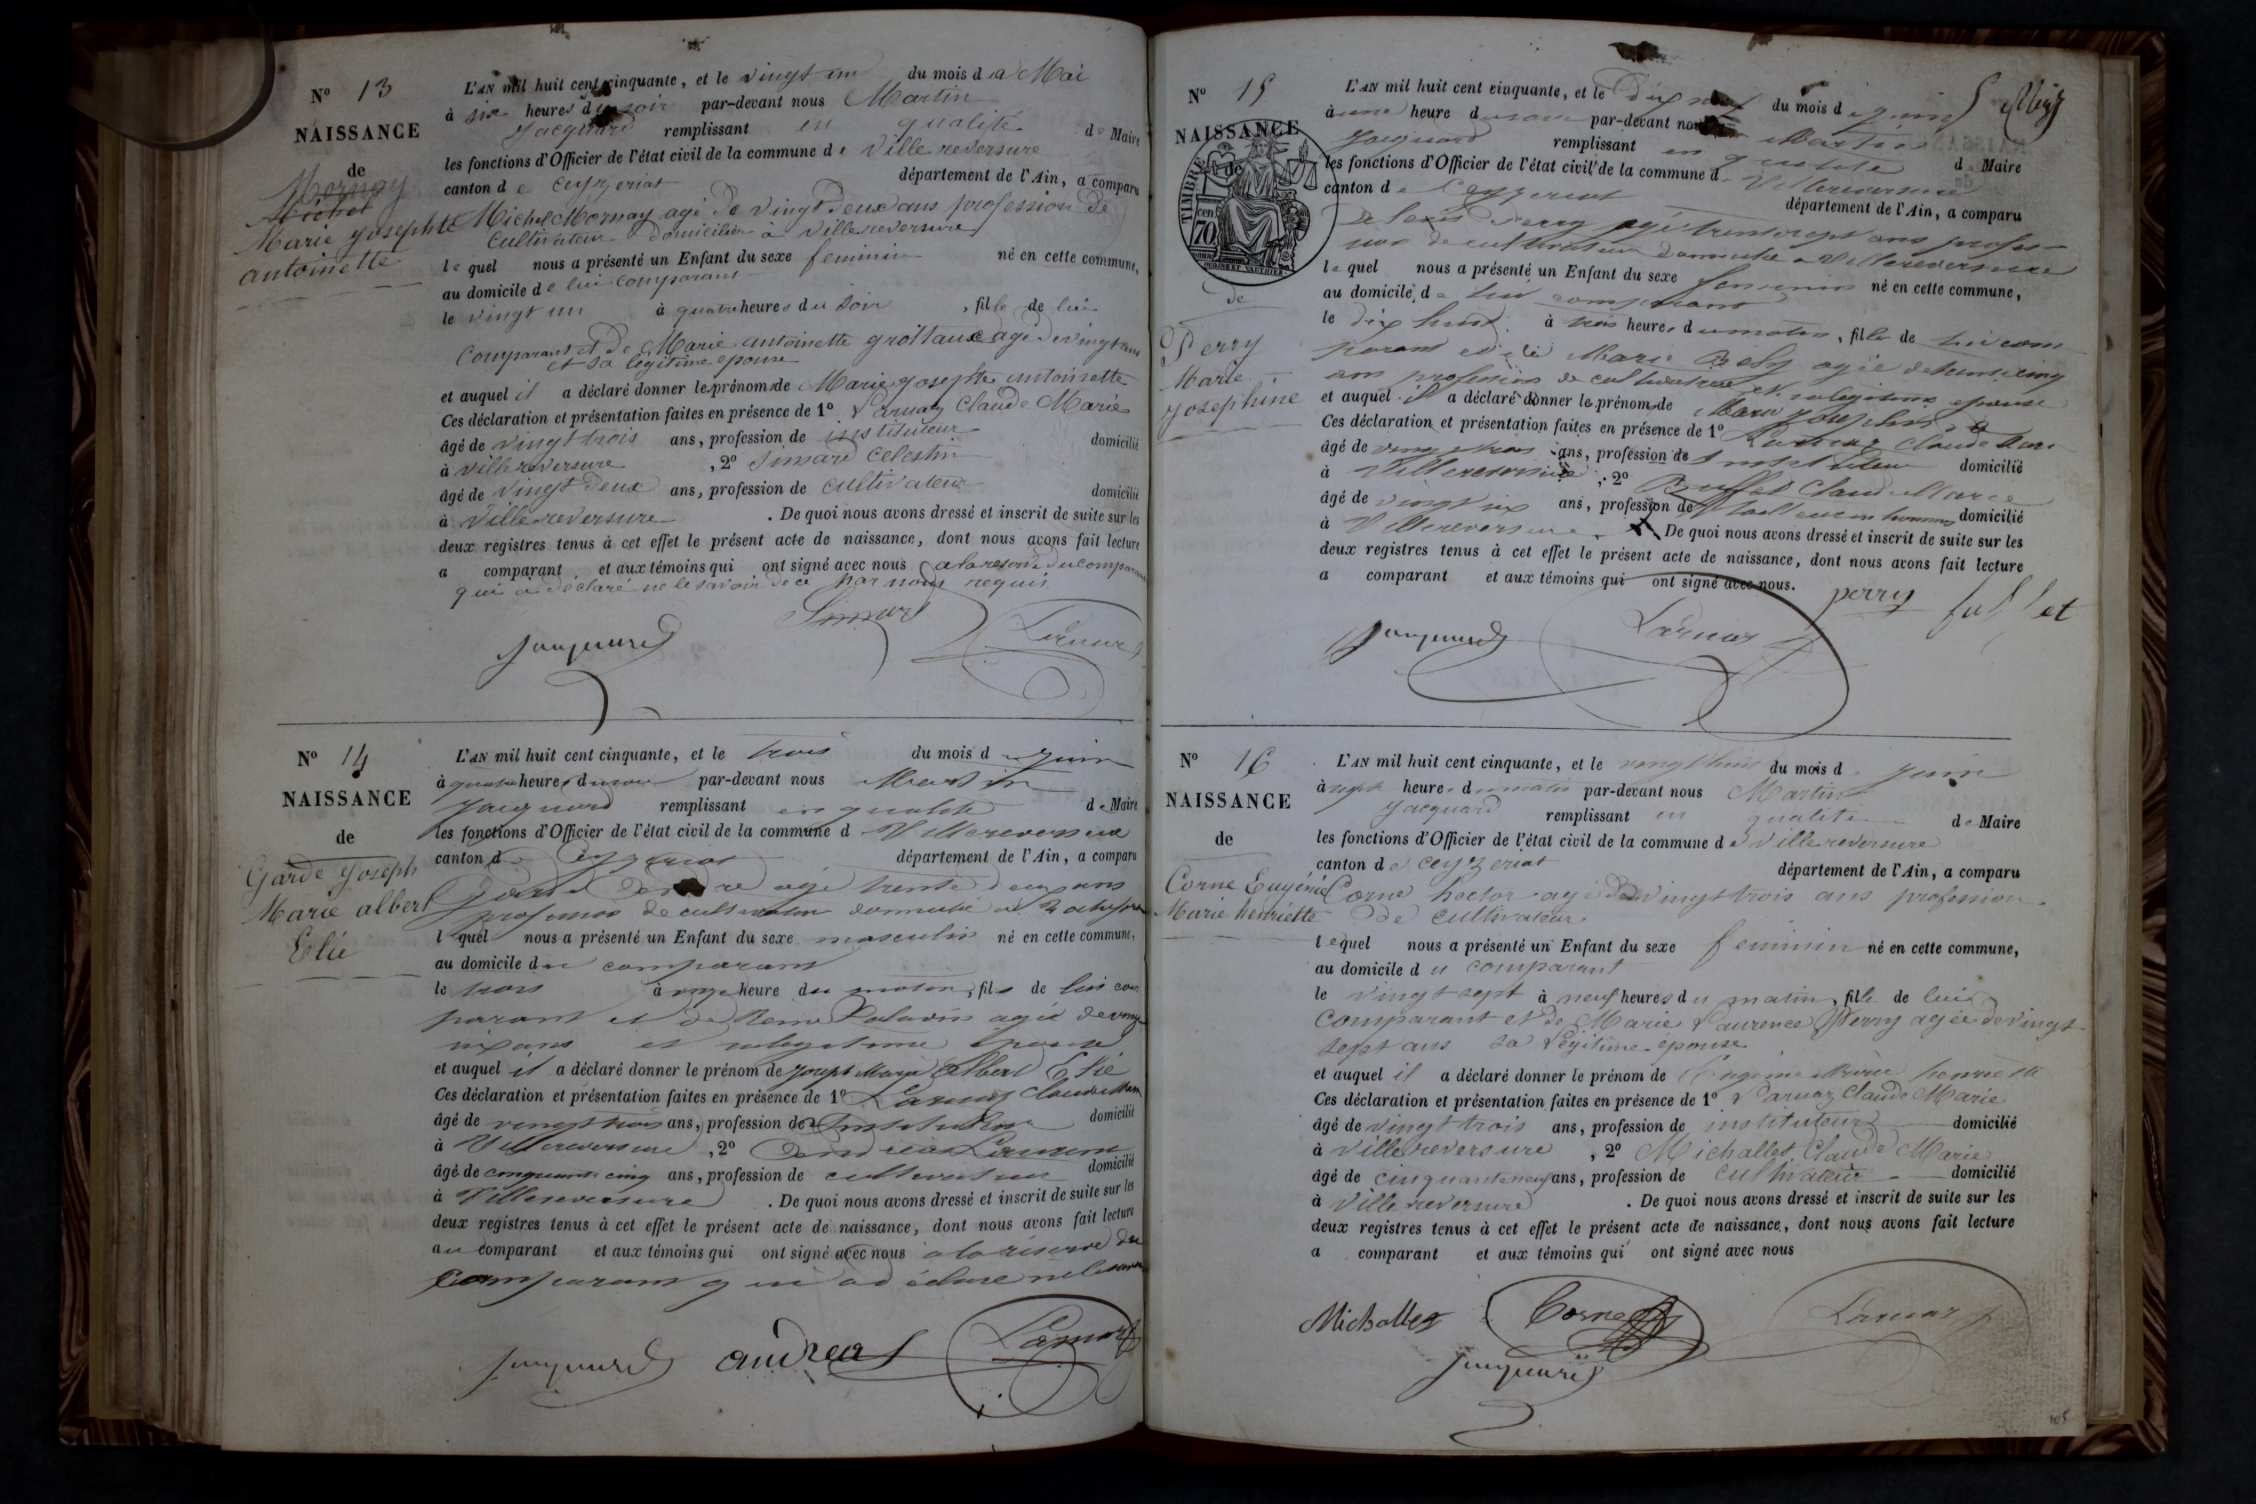 N° 13
NAISSANCE
de
Mornay
Michel
Marie Josephte
antoinette
L'AN mil huit cent cinquante, et le vingt un du mois de Mai
à six heures du soir par-devant nous Martin
Jacquard remplissant en qualité de Maire
les fonctions d'Officier de l'état civil de la commune de Villereversure
canton de Ceyzeriat département de l'Ain, a comparu
Michel Mornay agé de vingt deux ans profession de
Cultivateur domicilié à Villereversure
lequel nous a présenté un Enfant du sexe feminin né en cette commune,
au domicile de lui comparant
le vingt un à quatre heures du soir, fille de lui
Comparant et de Marie antoinette grottaux agé de vingt ans
et sa legitime epouse
et auquel il a déclaré donner le prénoms de Marie josephte antoinette
Ces déclaration et présentation faites en présence de 1° Larnaz Claude Marie
âgé de vingt trois ans, profession de instituteur domicilié
à Villereversure, 2° Simard Celestin
âgé de vingt deux ans, profession de cultivateur domicilié
à Villereversure. De quoi nous avons dressé et inscrit de suite sur les
deux registres tenus à cet effet le présent acte de naissance, dont nous avons fait lecture
a comparant et aux témoins qui ont signé avec nous a la reserve du comparant
qui a déclaré ne le savoir de ce par nous requis
Simard
Jacquard Larnaz
N° 14
NAISSANCE
de
Garde Joseph
Marie albert
Elie
L'AN mil huit cent cinquante, et le trois du mois de juin
à quatre heures du soir par-devant nous Martin
Jacquard remplissant en qualité de Maire
les fonctions d'Officier de l'état civil de la commune d Villereversure
canton de Ceyzeriat département de l'Ain, a comparu
Garde agé trente deux ans
profession de cultivateur domicilié a
l quel nous a présenté un Enfant du sexe masculin né en cette commune,
au domicile du comparant
le trois à onze heure du matin, fils de lui com
parant et de agée de vingt
six ans et sa legitime épouse
et auquel il a déclaré donner le prénom de Joseph Marie Albert Elie
Ces déclaration et présentation faites en présence de 1° Larnaz Claude Marie
âgé de vingt trois ans, profession de Instituteur domicilié
à Villereversure, 2°
âgé de cinquante cinq ans, profession de cultivateur domicilié
à Villereversure. De quoi nous avons dressé et inscrit de suite sur les
deux registres tenus à cet effet le présent acte de naissance, dont nous avons fait lecture
au comparant et aux témoins qui ont signé avec nous a la réserve du
comparant qui a déclaré ne le savoir
Jacquard andreas Larnaz
N° 15
NAISSANCE
TIMBRE
70 cen
de
Perry
Marie
josephine
L'AN mil huit cent cinquante, et le dix neuf du mois de juin
à une heure du soir par-devant nous Martin
Jacquard remplissant en qualité de Maire
les fonctions d'Officier de l'état civil de la commune d Villereversure
canton de Ceyzeriat département de l'Ain, a comparu
Perry agé trente sept ans profes-
sion de cultivateur domicilié a Villereversure
lequel nous a présenté un Enfant du sexe feminin né en cette commune,
au domicile de lui comparant
le dix huit à trois heures du matin, fille de lui com
parant et de Marie agée de trente cinq
ans profession de cultivateur et sa legitime epouse
et auquel il a déclaré donner le prénoms de Marie josephine
Ces déclaration et présentation faites en présence de 1° Larnaz Claude Marie
âgé de vingt trois ans, profession de Instituteur domicilié
à Villereversure, 2° Claude Marie
âgé de vingt six ans, profession de tailleur en hommes domicilié
à Villereversure. De quoi nous avons dressé et inscrit de suite sur les
deux registres tenus à cet effet le présent acte de naissance, dont nous avons fait lecture
a comparant et aux témoins qui ont signé avec nous. perry
Jacquard Larnaz
N° 16
NAISSANCE
de
Corne Eugénie
Marie henriette
L'AN mil huit cent cinquante, et le vingt huit du mois de juin
à sept heures du matin par-devant nous Martin
Jacquard remplissant en qualité de Maire
les fonctions d'Officier de l'état civil de la commune de Villereversure
canton de Ceyzeriat département de l'Ain, a comparu
Corne hector agé de vingt trois ans profession
de cultivateur
lequel nous a présenté un Enfant du sexe feminin né en cette commune,
au domicile du comparant
le vingt sept à neuf heures du matin, fille de lui
comparant et de Marie Laurence Perry agée de vingt
sept ans sa légitime epouse
et auquel il a déclaré donner le prénom de Eugénie Marie henriette
Ces déclaration et présentation faites en présence de 1° Larnaz Claude Marie
âgé de vingt trois ans, profession de instituteur domicilié
à Villereversure, 2° Michallet Claude Marie
âgé de cinquante neuf ans, profession de cultivateur domicilié
à Villereversure. De quoi nous avons dressé et inscrit de suite sur les
deux registres tenus à cet effet le présent acte de naissance, dont nous avons fait lecture
a comparant et aux témoins qui ont signé avec nous
Michallet Corne Larnaz
Jacquard
105